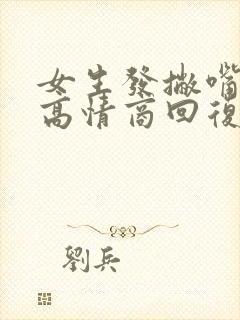 女生發撇嘴
高情商回復
劉兵